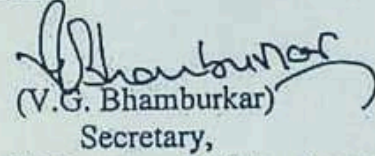 V.G. Bhamburkar
(V.G. Bhamburkar)
Secretary,